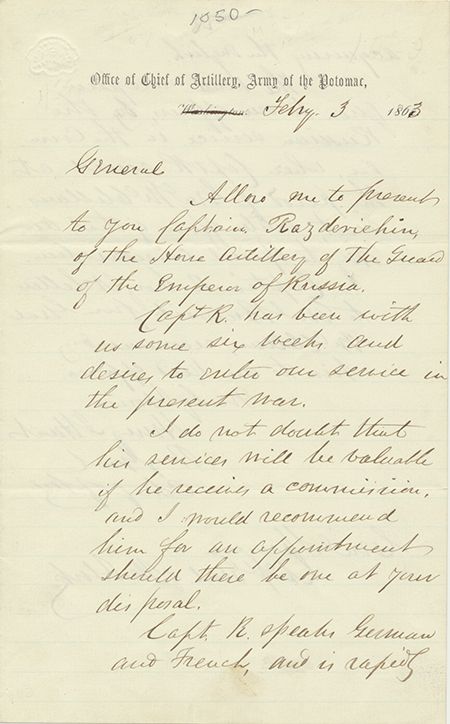 1050-
Office of Chief of Artillery, Army of the Potomac,
Washington Feby. 3 1863
General
Allow me to present
to you Captain Razderichin,
of the Horse Artillery of the Guard
of the Emperor of Russia.
Capt R. has been with
us some six weeks and
desires to enter our service in
the present war.
I do not doubt that
his services will be valuable
if he receives a commission,
and I would recommend
him for an appointment
should there be one at your
disposal.
Capt. R. speaks German
and French, and is rapidly